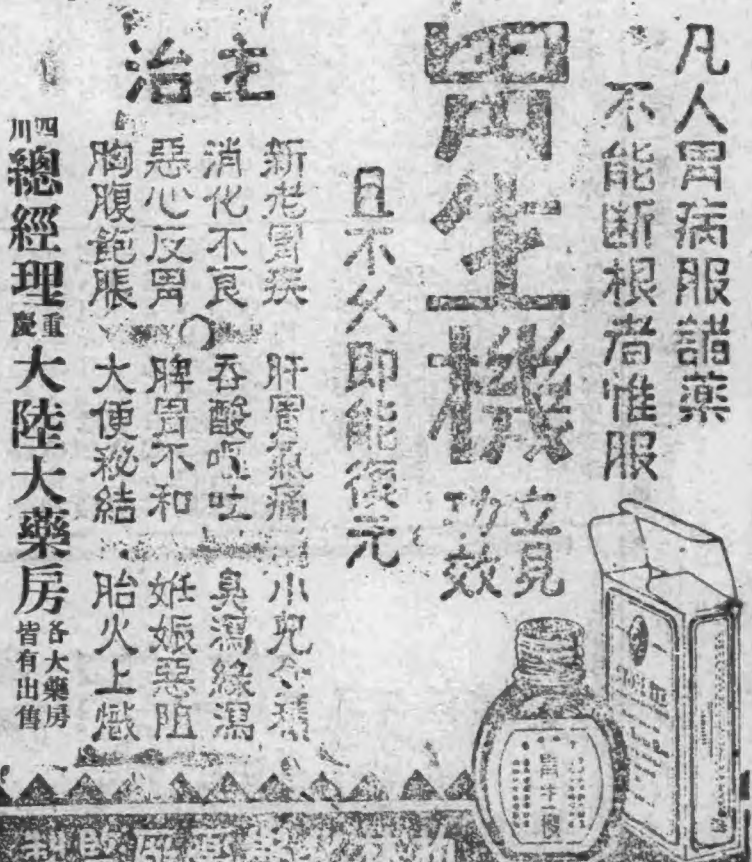 凡人胃病服諸藥
不能断根者惟服
胃生機
立見
功效
且不久即能復元
主治
新老胃疾
肝胃氣痛
消化不良
吞酸嘔吐
臭瀉綠瀉
惡心反胃
脾胃不和
姙娠惡阻
胸腹飽脹
大便秘結
胎火上熾
四川總經理重慶大陸大藥房
各大藥房
皆有出售
胃生機